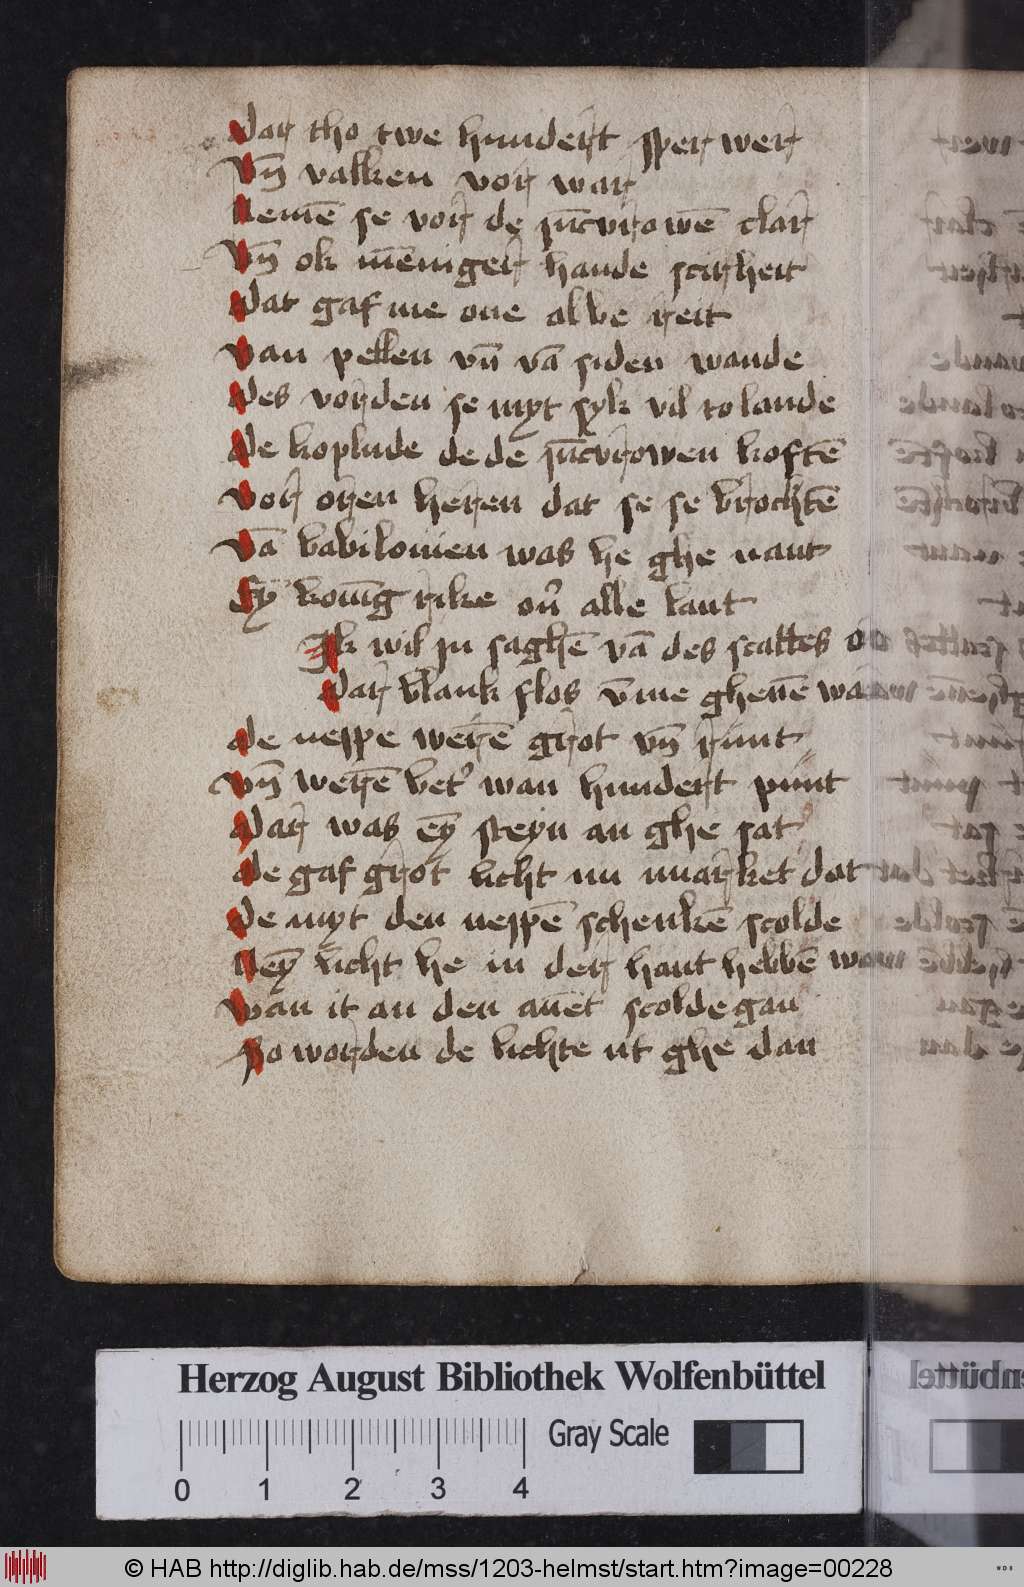 Dar tho twe hundert sperwer
Vn̄ valken vor war
Nemē se vor de jūcvrowē clar
Vn̄ ok mēniger hande scirheit
Dat gaf me one al be reit
Van pellen vn̄ vā siden wande
Des vorden se myt syk vil to lande
De koplude de de jūcvrowen koftē
Vor oren heren dat se se brochtē
Vā babilonien was he ghe nant
Ey konīg rike ou̓ alle lant
Ik wil ju saghē vā des scattes
Dar blank flos v̄me gheuē
De neppe werē grot vn̄ runt
Vn̄ werē bet̓ wan hundert punt
Dar was eȳ steyn an ghe sat
De gaf grot licht nu market dat
De myt den neppē schenkē scolde
Neȳ licht he in der hant hebbē
Wan it an den auēt scolde gan
So worden de lichte ut ghe dan
Herzog August Bibliothek Wolfenbüttel
Gray Scale
0 1 2 3 4
© HAB http://diglib.hab.de/mss/1203-helmst/start.htm?image=00228